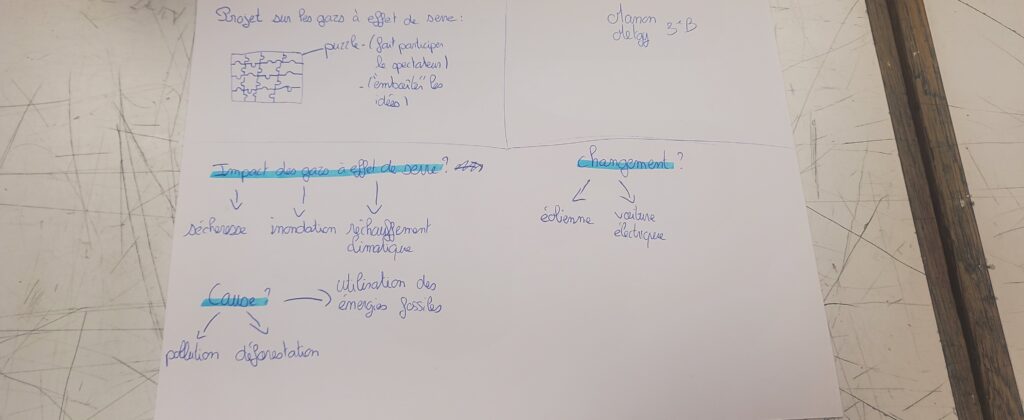 Projet sur les gazs à effet de serre :
puzzle - (fait participer
le spectateur)
- ("emboîter" les
idées)
Manon
Melgy 3ᵉB
Impact des gazs à effet de serre ?
sécheresse inondation réchauffement
climatique
Cause ?
utilisation des
énergies fossiles
pollution déforestation
Changement ?
éolienne voiture
électrique